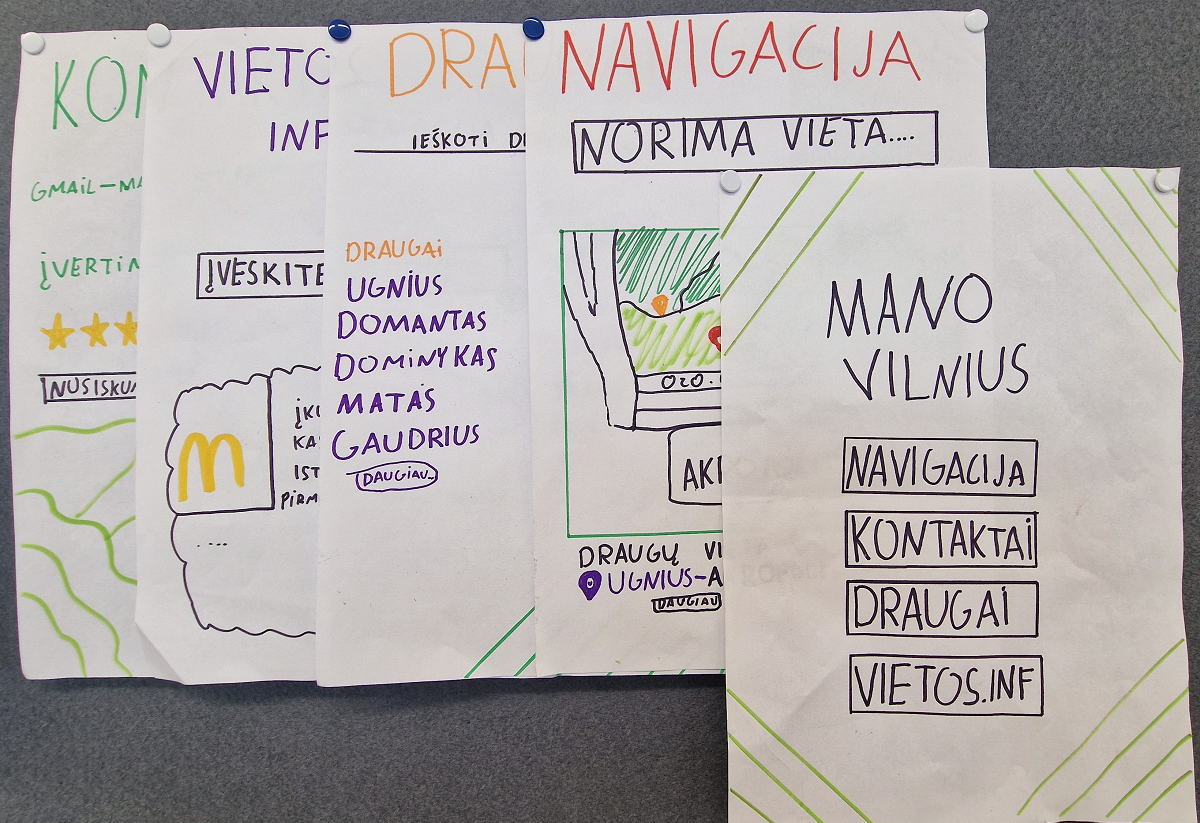 KON
GMAIL-MA
ĮVERTIN
NUSISKU
VIETO
INF
ĮVESKITE
M
ĮK
KA
IST
PIRM
....
DRAU
IEŠKOTI D
DRAUGAI
UGNIUS
DOMANTAS
DOMINYKAS
MATAS
GAUDRIUS
DAUGIAU..
NAVIGACIJA
NORIMA VIETA....
OZO.
AK
DRAUGŲ VI
UGNIUS-A
DAUGIAU
MANO
VILNIUS
NAVIGACIJA
KONTAKTAI
DRAUGAI
VIETOS.INF